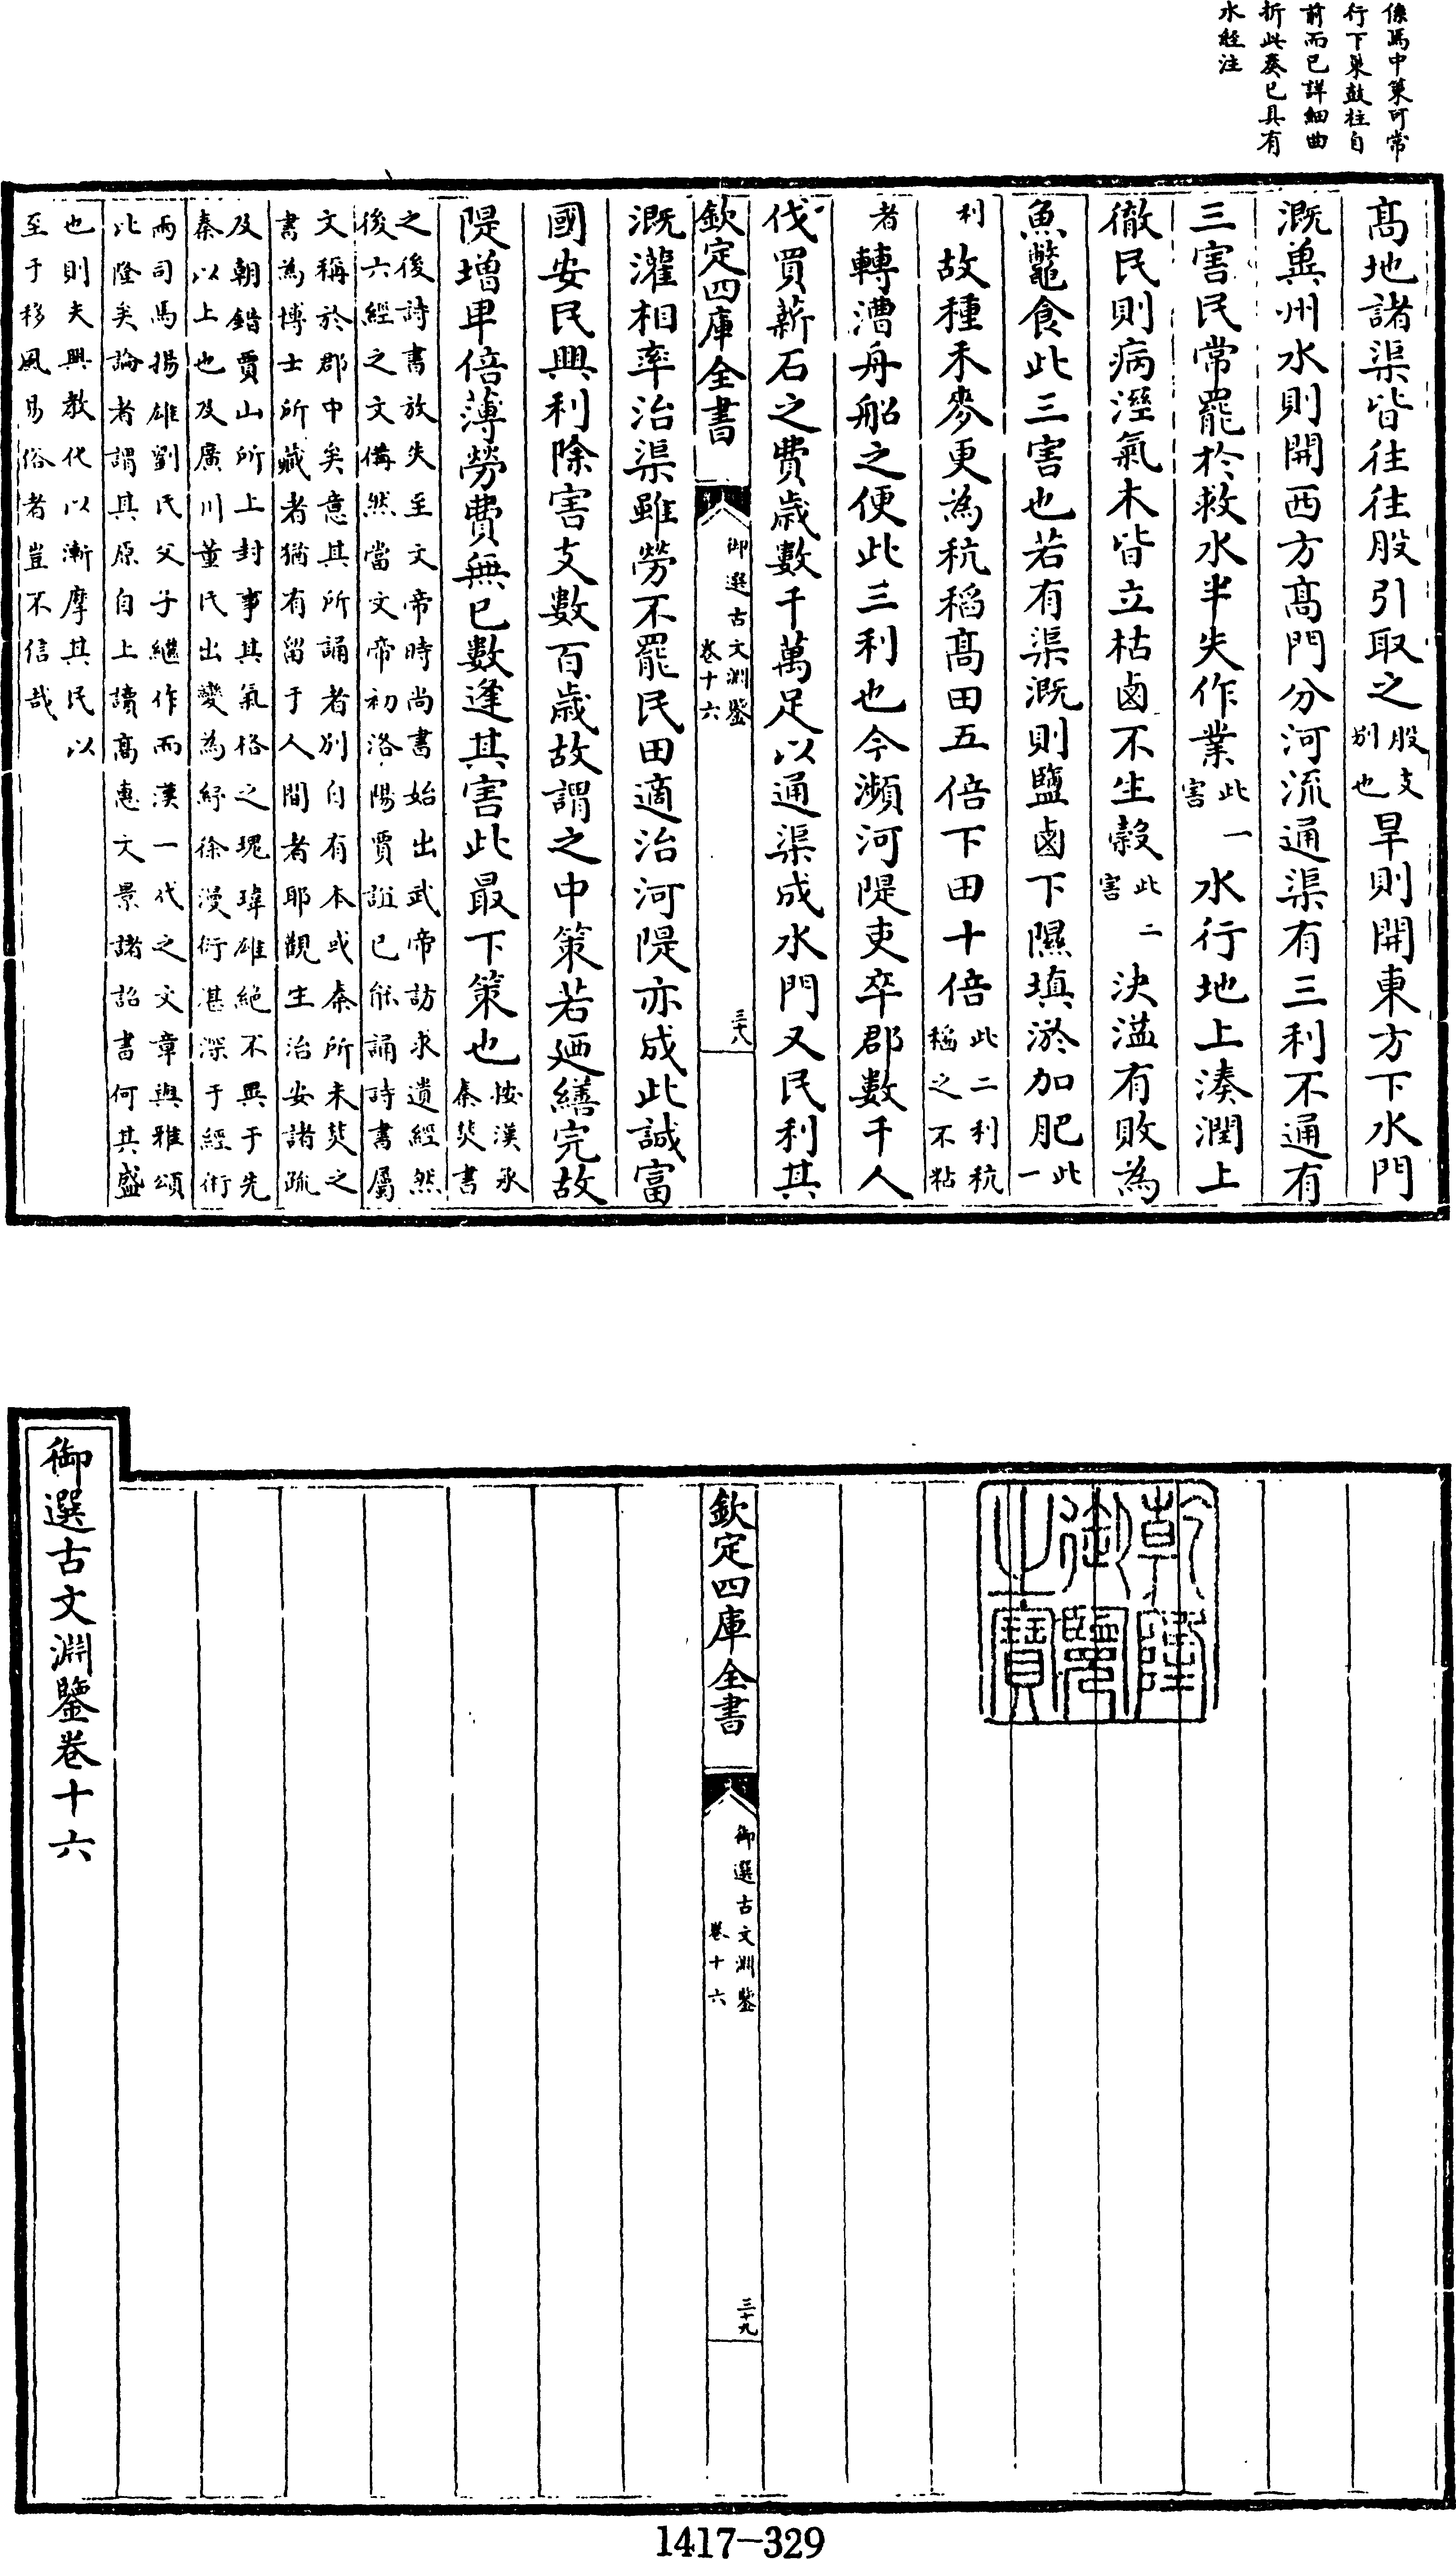 係焉中策可常
行下策鼓柱自
前而已詳細曲
折此奏已具有
水經注
髙地諸渠皆往往股引取之股支别也旱則開東方下水門
溉冀州水則開西方髙門分河流通渠有三利不通有
三害民常罷於救水半失作業此一害水行地上湊潤上
徹民則病溼氣木皆立枯鹵不生榖此二害決溢有敗為
魚鼈食此三害也若有渠溉則鹽鹵下隰填淤加肥此一
利故種禾麥更為秔稻髙田五倍下田十倍此二利秔稻之不粘
者轉漕舟船之便此三利也今瀕河隄吏卒郡數千人
伐買薪石之費歳數千萬足以通渠成水門又民利其
欽定四庫全書
御選古文淵鑒
卷十六
三十八
溉灌相率治渠雖勞不罷民田適治河隄亦成此誠富
國安民興利除害支數百歳故謂之中策若廼繕完故
隄增卑倍薄勞費無已數逢其害此最下策也按漢承秦焚書
之後詩書放失至文帝時尚書始出武帝訪求遺經然
後六經之文備然當文帝初洛陽賈誼已能誦詩書屬
文稱於郡中矣意其所誦者别自有本或秦所未焚之
書為博士所藏者猶有留于人間者耶觀生治安諸疏
及朝錯賈山所上封事其氣格之瑰瑋雄絶不異于先
秦以上也及廣川董氏出變為紆徐漫衍湛深于經術
兩司馬揚雄劉氏父子繼作而漢一代之文章與雅頌
比隆矣論者謂其原自上讀髙惠文景諸詔書何其盛
也則夫興教代以漸摩其民以
至于移風易俗者豈不信哉
乾隆御覽之寶
欽定四庫全書
御選古文淵鑒
卷十六
三十九
御選古文淵鑒卷十六
1417-329